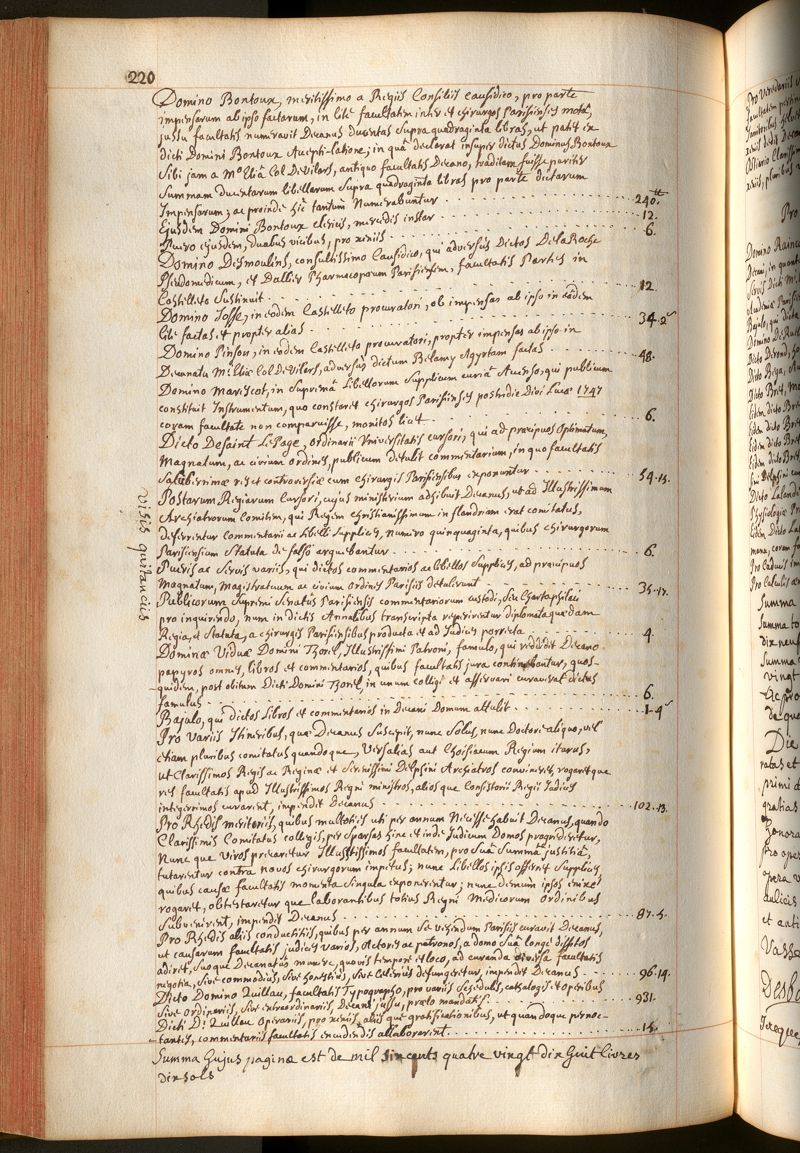 220
Domino Bontoux, meritissimo a Regiis Consiliis Causidico, pro parte
impensarum ab ipso factarum, in lite facultatem inter et chirurgos Parisienses motâ,
jussu facultatis numeravit Decanus ducentas supra quadraginta libras, ut patet ex
dicti Domini Bontoux Accepti-latione; in quâ declarat insuper dictus Dominus Bontoux
sibi jam a Mo. Eliâ Col De Vilars, antiquo facultatis Decano, traditam fuisse pariter
summam ducentarum libellarum supra quadraginta libras pro parte dictarum
impensarum; ac proinde hîc tantum Numerabuntur 240.tt
Ejusdem Domini Bontoux clerico, mercedis instar 12.
Puero ejusdem, duabus vicibus, pro xeniis 6.
Domino Desmoulins, consultissimo Causidico, qui adversus Dictos De la Roche
Pseudomedicum, et Dallier Pharmacopœum Parisiensem, facultatis Partes in
Castelleto Sustinuit 12
Domino Josse, in eodem Castelleto procuratori, ob impensas ab ipso in eâdem
lite factas, et propter alias 34.2s
Domino Pinson, in eodem Castelleto procuratori, propter impensas ab ipso in
Decanatu Mi. Eliæ Col De Vilers, adversus dictum Belamy Agyrtam factas 48.
Domino Mariscot, in Supremâ Libellorum Supplicum curiâ Accenso, qui publicum
constituit Instrumentum, quo constaret chirurgos Parisienses postridie Divi Lucæ 1747
coram facultate non comparuisse, monitos licet 6.
Dicto De Saint LePage, ordinario Universitatis cursori, qui ad præcipuos Optimatum,
Magnatum, ac civium ordines, publicum detulit commentarium, in quo facultatis
saluberrimæ res et controversiæ cum chirurgis Parisiensibus exponuntur 54.15.
Postarum Regiarum Cursori, cujus ministerium adhibuit Decanus, ut ad Illustrissimum
Archiatrorum Comitem, qui Regem Christianissimum in flandriam erat comitatus,
deferrentur commentarii ac Libelli Supplices, numero quinquaginta, quibus chirurgorum
Parisiensium Statuta de falso arguebantur 6.
Pueris ac Servis variis, qui dictos commentarios ac libellos Supplices, ad præcipuos
Magnatum, Magistratuum ac civium ordines Parisiis detulerunt 35.17.
Publicorum Supremi Senatûs Parisiensis commentariorum custodi, seu Chartophilaci
pro inquirendo, num in dictis Annalibus transcripta reperirentur diplomata quædam
Regia, et Statuta, a chirurgis Parisiensibus producta et ad Judices porrecta 4.
Dominæ Viduæ Domini Thorel, Illustrissimi Patroni, famulo, qui reddidit Decano
papyros omnes, libros et commentarios, quibus facultatis jura continebantur, quos-
quidem, post obitum Dicti Domini Thorel, in unum colligi et asservari curaverat dictus
famulus 6.
Bajulo, qui dictos Libros et commentarios in Decani Domum attulit 1.4s
Pro Variis Itineribus, quæ Decanus Suscepit, nunc Solus, nunc Doctore aliquo, vel
etiam pluribus comitatus quandoque, Versalias aut Choisiacum Regium iturus,
ut Clarissimos Regis ac Reginæ et Serenissimi Delphini Archiatros conveniret, rogaretque
res facultatis apud Illustrissimos Regni ministros, aliosque Consistorii Regii Judices
integerrimos curarent, impendit Decanus 102.13.
Pro Rhedis meritoriis, quibus multoties uti per annum Necesse habuit Decanus, quando
Clarissimis Comitatus collegis, per Sparsas hinc et inde Judicum Domos progrederetur,
Nunc que Viros precaretur Illustrissimos facultatem, pro Suâ Summâ justitiâ,
tutarentur contra novos chirurgorum impetus; nunc Libellos ipsis offerret Supplices
quibus causæ facultatis momenta Singula exponerentur; nunc demum ipsos enixe
rogaret, obtestaretur que laborantibus totius Regni Medicorum Ordinibus
Subvenirent, impendit Decanus 87.4.
Pro Rhedis aliis conductitiis, quibus per annum Se vehendum Parisiis curavit Decanus,
ut causarum facultatis judices varios, Actores ac patronos, a domo Suâ longè dissitos
adiret, suoque Decanatûs munere, quovis tempore et loco, ad curanda diversa facultatis
negotia, sive commodiùs, sive honestiùs, sive Celeriùs defungeretur, impendit Decanus 96.14.
Dicto Domino Quillau, facultatis Typographo, pro variis Schedulis, catalogis et operibus
sive ordinariis, sive extraordinariis, Decani jussu, prælo mandatis 931.
Dicti Di. Quillau Operariis, pro xeniis, aliisque gratificationibus, ut quandoque pernoc-
tantes, commentariis facultatis excudendis allaborarent 15.
Summa hujus paginæ est de mil six cents quatre vingt dix huit livres
dix sols
visis quitanciis